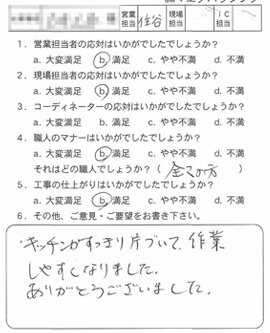 営業担当 住谷 現場担当 IC担当
1．営業担当者の応対はいかがでしたでしょうか？
a. 大変満足 b. 満足 c. やや不満 d. 不満
2．現場担当者の応対はいかがでしたでしょうか？
a. 大変満足 b. 満足 c. やや不満 d. 不満
3．コーディネーターの応対はいかがでしたでしょうか？
a. 大変満足 b. 満足 c. やや不満 d. 不満
4．職人のマナーはいかがでしたでしょうか？
a. 大変満足 b. 満足 c. やや不満 d. 不満
それはどの職人でしょうか？（全ての方）
5．工事の仕上がりはいかがでしたでしょうか？
a. 大変満足 b. 満足 c. やや不満 d. 不満
6．その他、ご意見・ご要望をお書き下さい。
キッチンがすっきり片づいて、作業
しやすくなりました。
ありがとうございました。